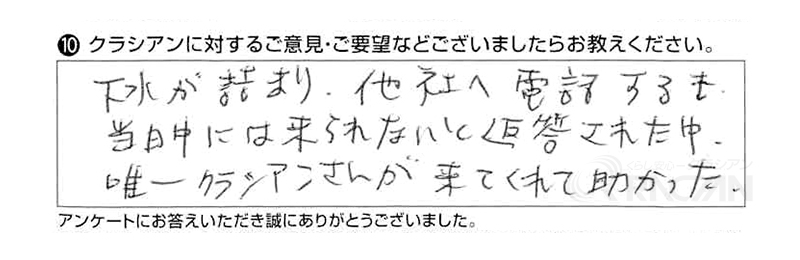 ⑩ クラシアンに対するご意見・ご要望などございましたらお教えください。
下水が詰まり、他社へ電話するも、
当日中には来られないと返答された中、
唯一クラシアンさんが来てくれて助かった。
アンケートにお答えいただき誠にありがとうございました。